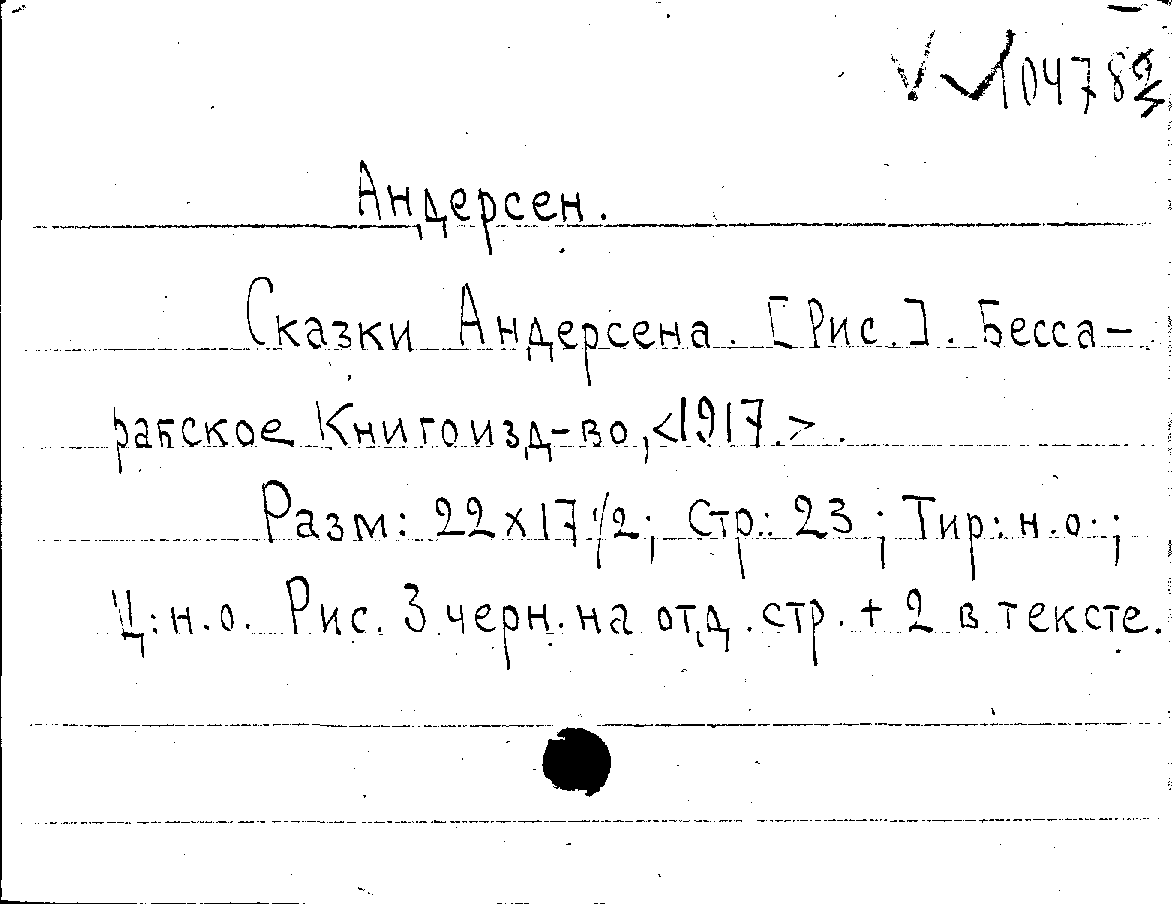 Андерсен.
Сказки Андерсена. [Рис.]. Бесса-
рабское Книгоизд-во, <1917.>.
Разм: 22×17 1/2; Стр.: 23; Тир: н.о.;
Ц: н.о. Рис. 3 черн. на отд. стр. + 2 в тексте.